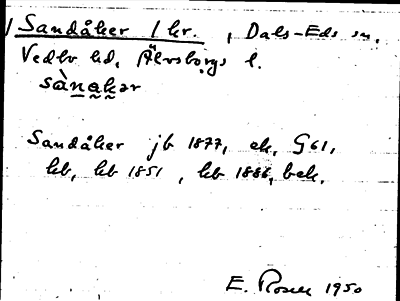 Sandåker 1 hr. , Dals-Eds sn.
Vedbo hd, Älvsborgs l.
sànakər
Sandåker jb 1877, ek, G61,
kb, hb 1851 , hb 1886, bek.
E. Rosell 1950